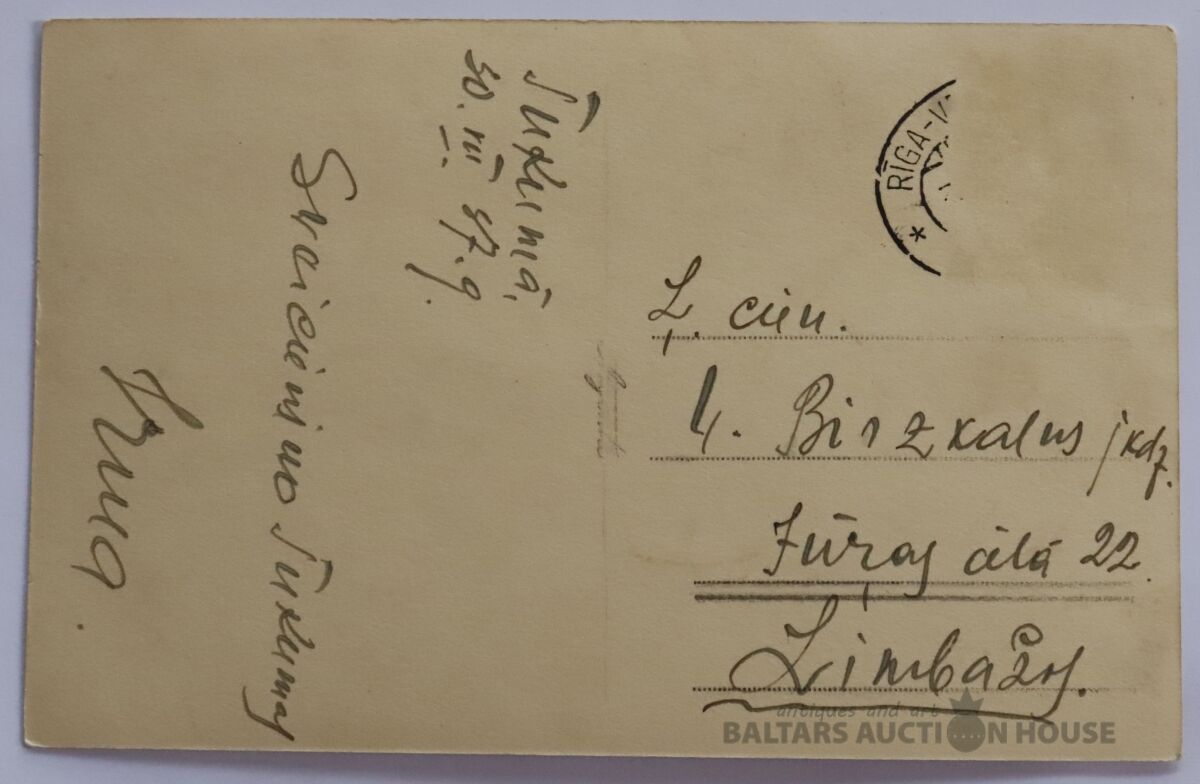 Tukumā,
30. VII 37. g.
Sveiciens no Tukuma
RĪGA-V
Ļ. cien.
L. Birzkalns jkdz.
Jūras ielā 22.
Limbažos.
antiques and art
BALTARS AUCTION HOUSE